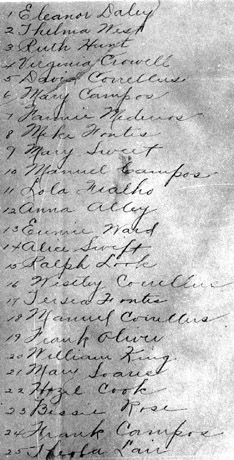 1 Eleanor Daley
2 Thelma West
3 Ruth Hunt
4 Virginia Crowell
5 David Correllus
6 Mary Campos
7 Fannie Medeiros
8 Mike Fontis
9 Mary Sweet
10 Manuel Campos
11 Lola Fialho
12 Anna Alley
13 Eunnie Ward
14 Alice Swift
15 Ralph Look
16 Westley Correllus
17 Tersia Fontis
18 Manuel Correllus
19 Frank Oliver
20 William King
21 Mary Soares
22 Hazel Cook
23 Bessie Rose
24 Frank Campos
25 Theola Lair